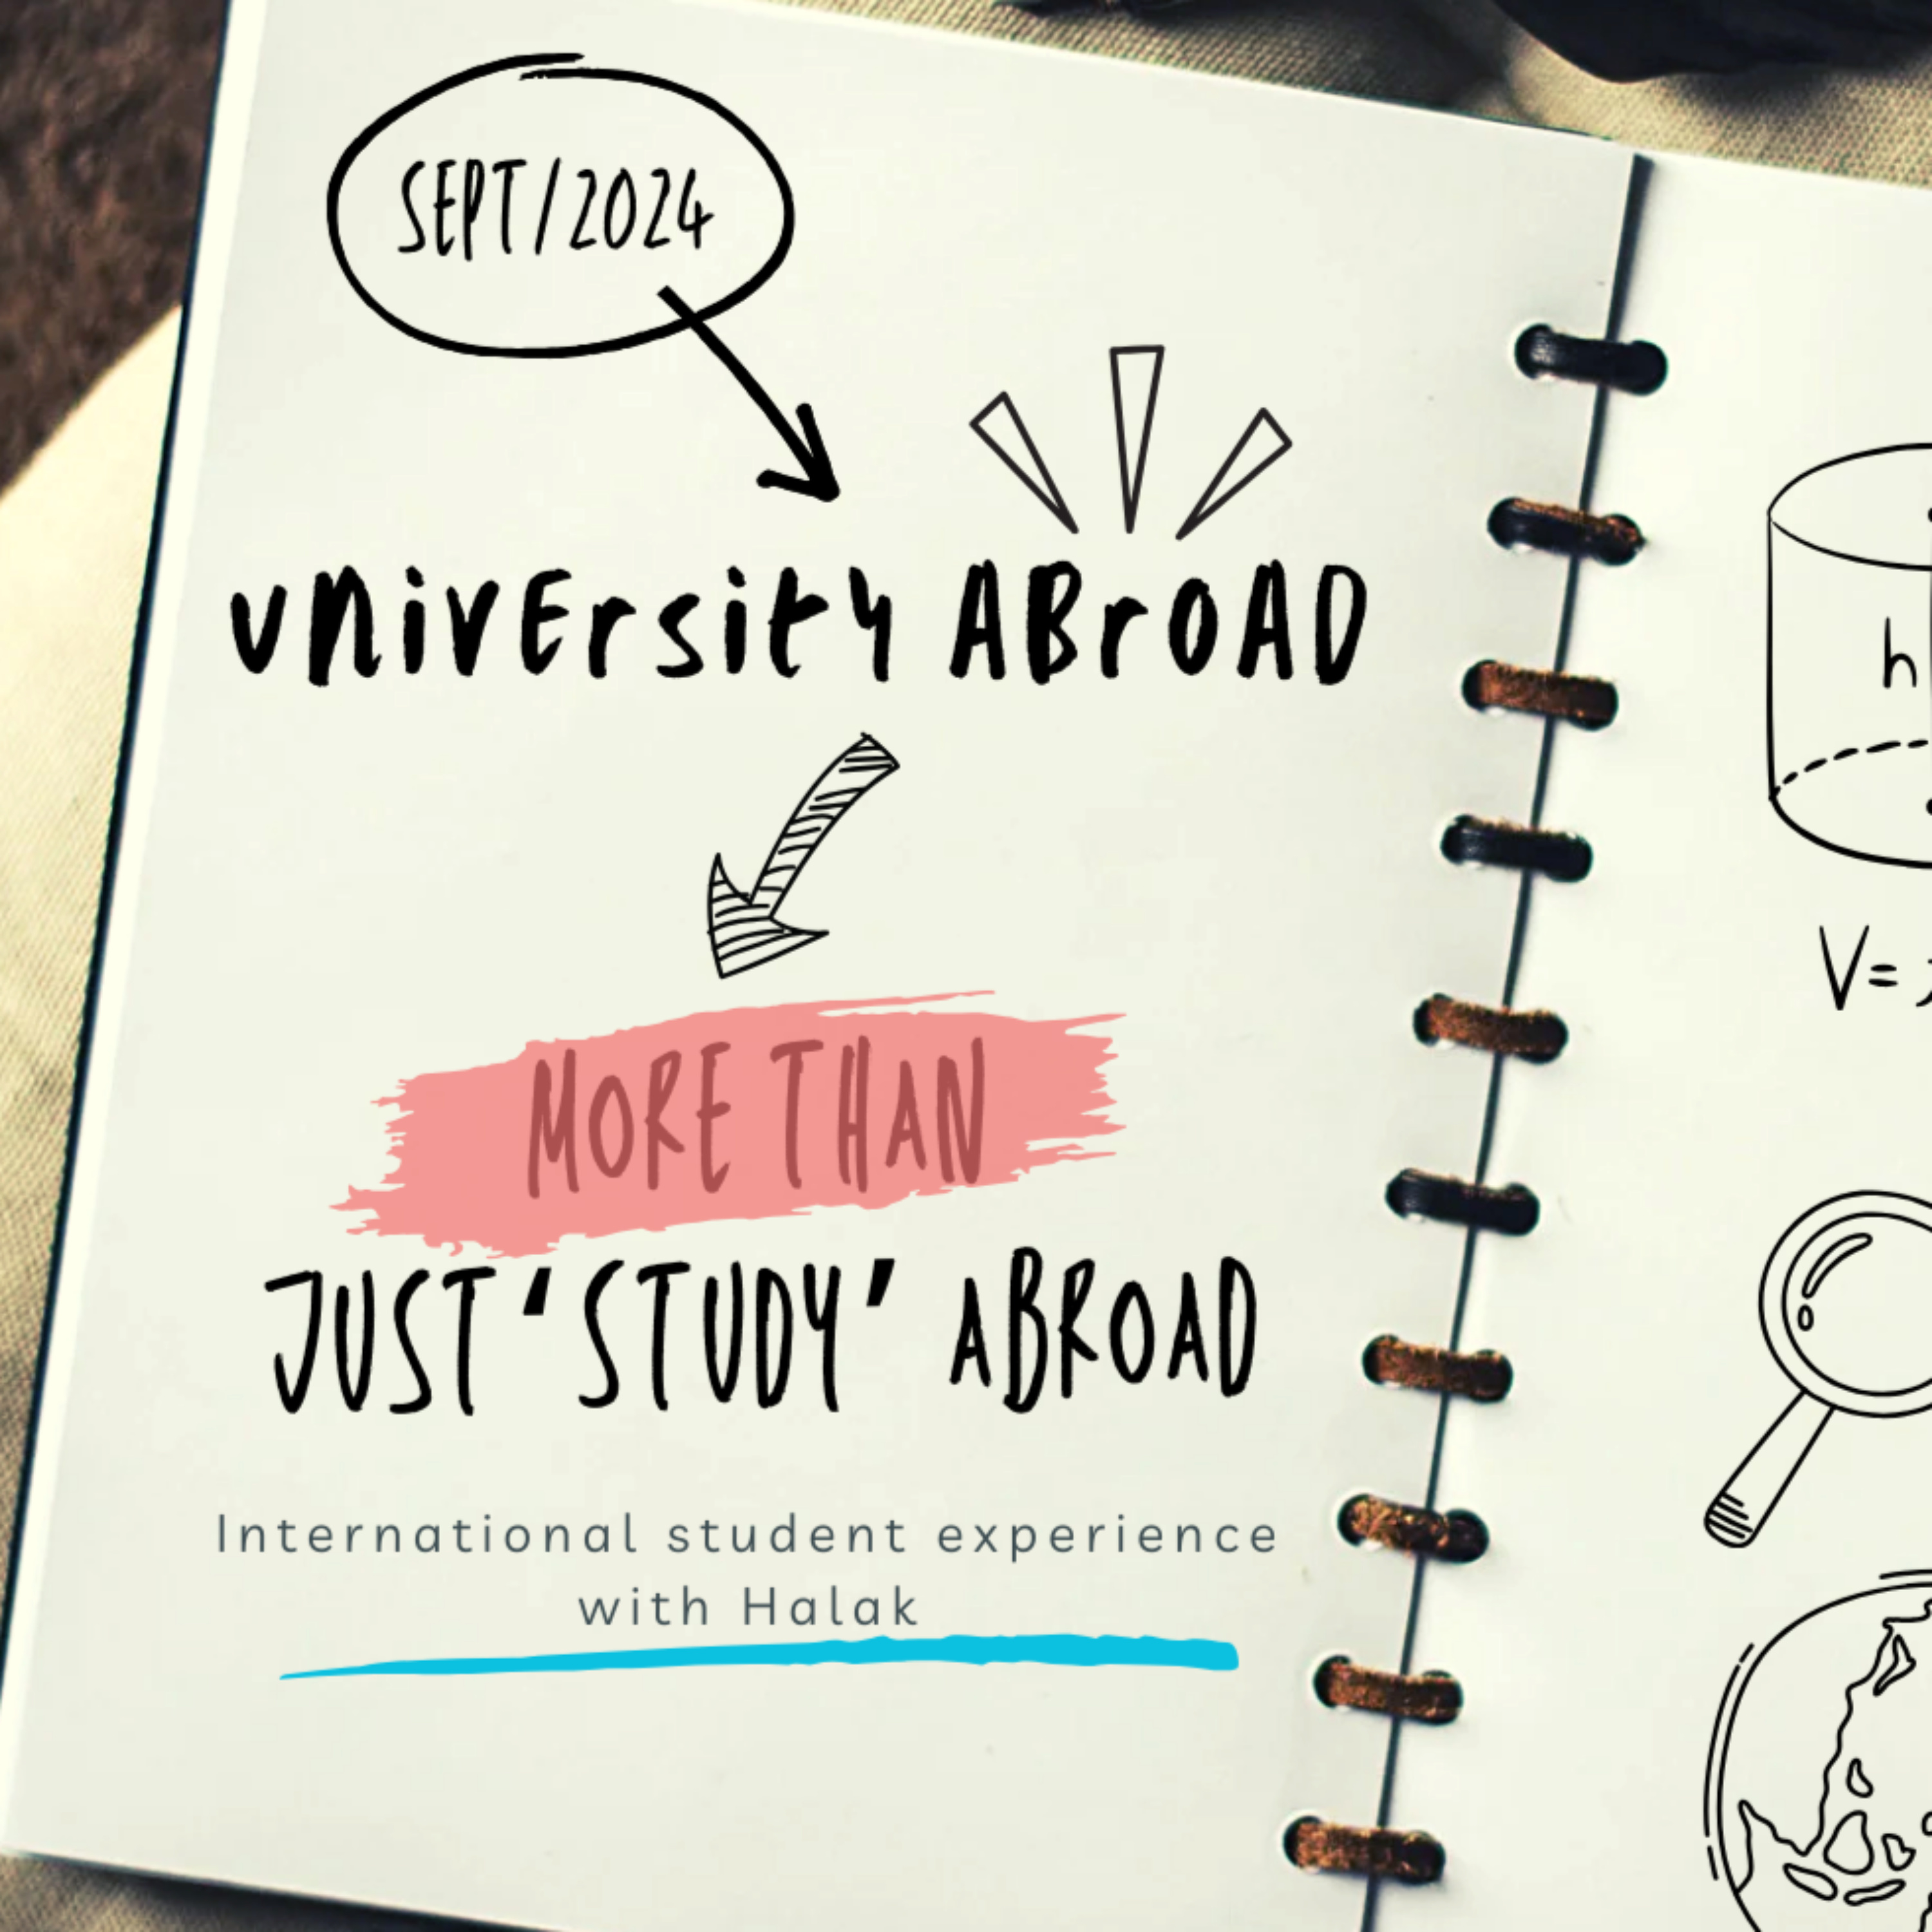 SEPT/2024
UNIVERSITY ABROAD
MORE THAN
JUST "STUDY" ABROAD
International student experience
with Halak
h
V=